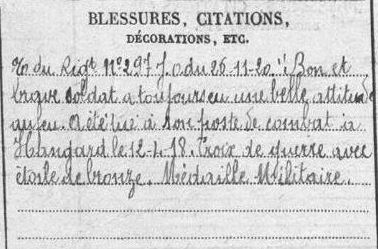 BLESSURES, CITATIONS,
DÉCORATIONS, ETC.
O/ du Rigt Nº 297 J.O du 26-11-20. "Bon et
brave soldat a toujours eu une belle attitude
au feu. A été tué à son poste de combat à
Hangard le 12-4-18. Croix de guerre avec
étoile de bronze. Médaille Militaire.